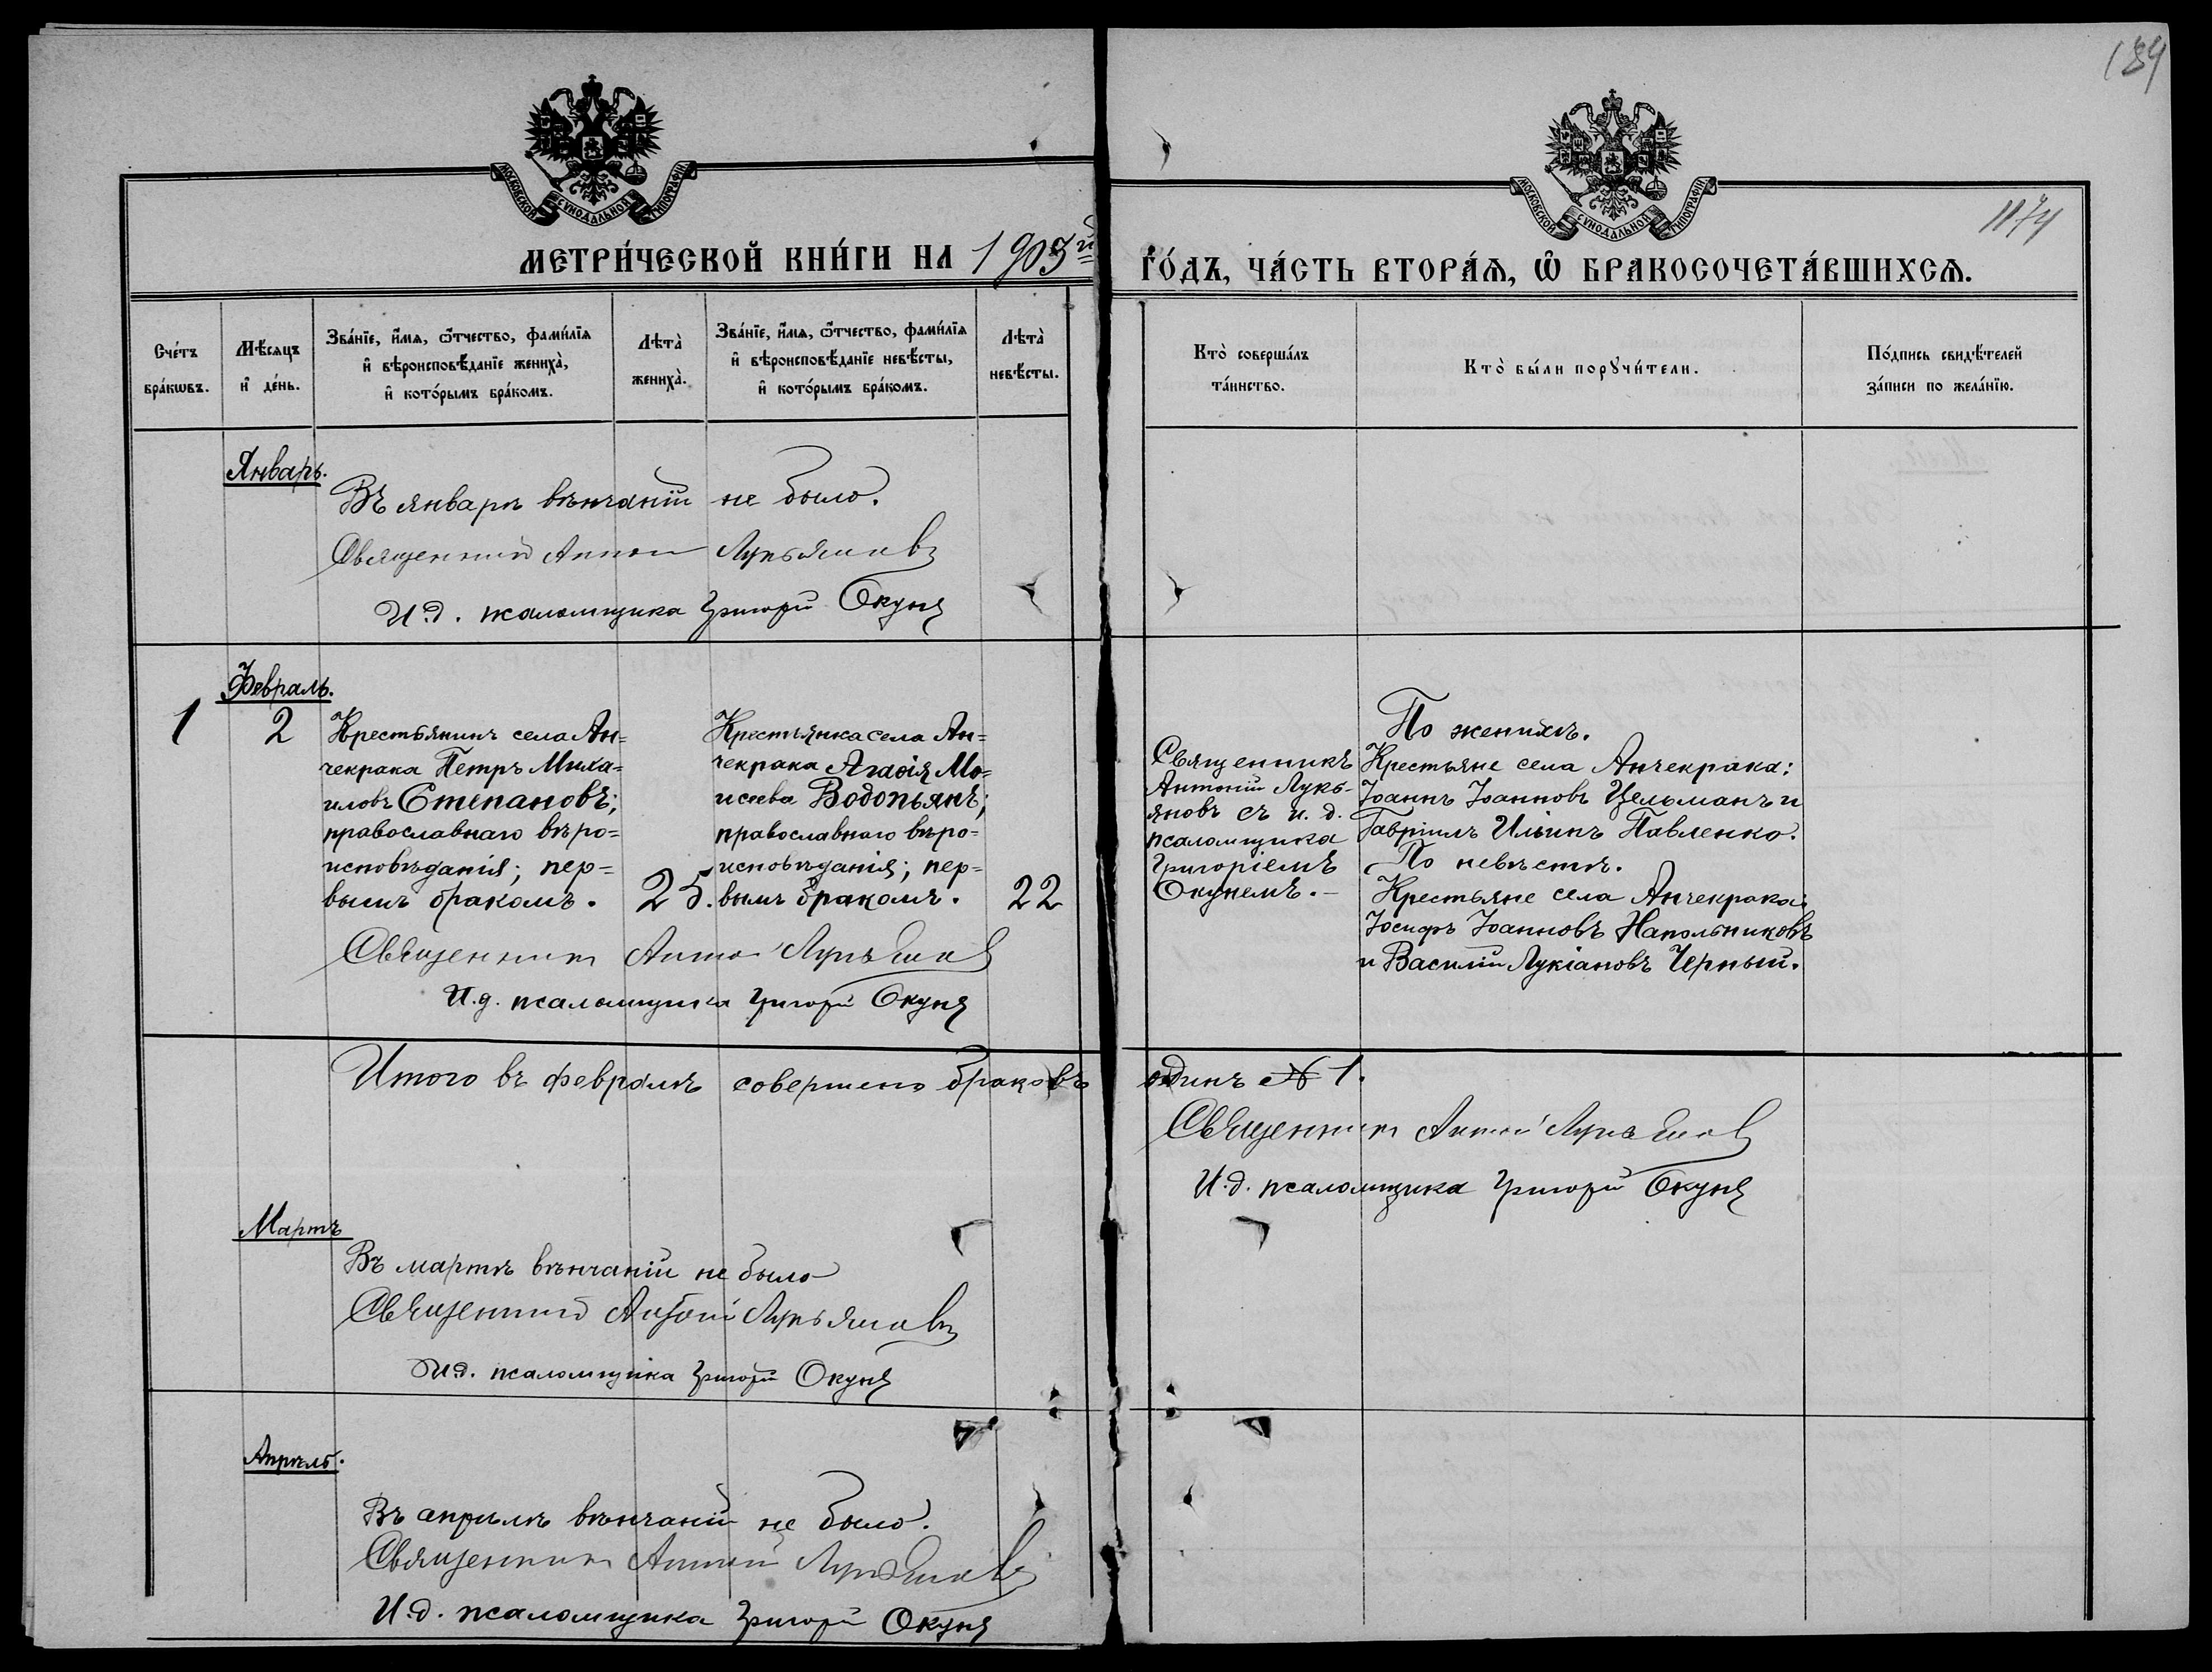 184
1174
МОСКОВСКОЙ СУНОДАЛЬНОЙ ТИПОГРАФІИ
МОСКОВСКОЙ СУНОДАЛЬНОЙ ТИПОГРАФІИ
МЕТРИ́ЧЕСКОЙ КНИ́ГИ НА 1905й ГО́ДЪ, ЧА́СТЬ ВТОРА́Я, Ѽ БРАКОСОЧЕТА́ВШИХСЯ.
Сче́тъ бра́кωвъ.
Мѣ́сяцъ и҆ де́нь.
Зва́нїе, и҆́мя, ѻ҆́тчество, фами́лїя и҆ вѣроисповѣ́данїе жениха̀, и҆ кото́рымъ бра́комъ.
Лѣта̀ жениха̀.
Зва́нїе, и҆́мя, ѻ҆́тчество, фами́лїя и҆ вѣроисповѣ́данїе невѣ́сты, и҆ кото́рымъ бра́комъ.
Лѣта̀ невѣ́сты.
Кто̀ соверша́лъ та́инство.
Кто̀ бы́ли порꙋчи́тели.
По́дпись свидѣ́телей за́писи по жела́нїю.
Январь.
Въ январѣ вѣнчаній не было.
Священникъ Антоній Лукьяновъ
И.д. псаломщика Григорій Окунь
Февраль.
1
2
Крестьянинъ села Ан=
чекрака Петръ Миха=
иловъ Степановъ;
православнаго вѣро=
исповѣданія; пер=
вымъ бракомъ.
25.
Крестьянка села Ан=
чекрака Агаѳія Мо=
исеева Водопьянъ;
православнаго вѣро=
исповѣданія; пер=
вымъ бракомъ.
22
Священникъ
Антоній Лукь-
яновъ съ и. д.
псаломщика
Григоріемъ
Окунемъ.–
По женихѣ.
Крестьяне села Анчекрака:
Іоаннъ Іоанновъ Цельманъ и
Гавріилъ Ильинъ Павленко.
По невѣстѣ.
Крестьяне села Анчекрака:
Іосифъ Іоанновъ Напольниковъ
и Василій Лукіановъ Черный.
Священникъ Антоній Лукьяновъ
И.д. псаломщика Григорій Окунь
Итого въ февралѣ совершено браковъ одинъ № 1.
Священникъ Антоній Лукьяновъ
И.д. псаломщика Григорій Окунь
Мартъ
Въ мартѣ вѣнчаній не было
Священникъ Антоній Лукьяновъ
И.д. псаломщика Григорій Окунь
Апрѣль.
Въ апрѣлѣ вѣнчаній не было.
Священникъ Антоній Лукьяновъ
И.д. псаломщика Григорій Окунь